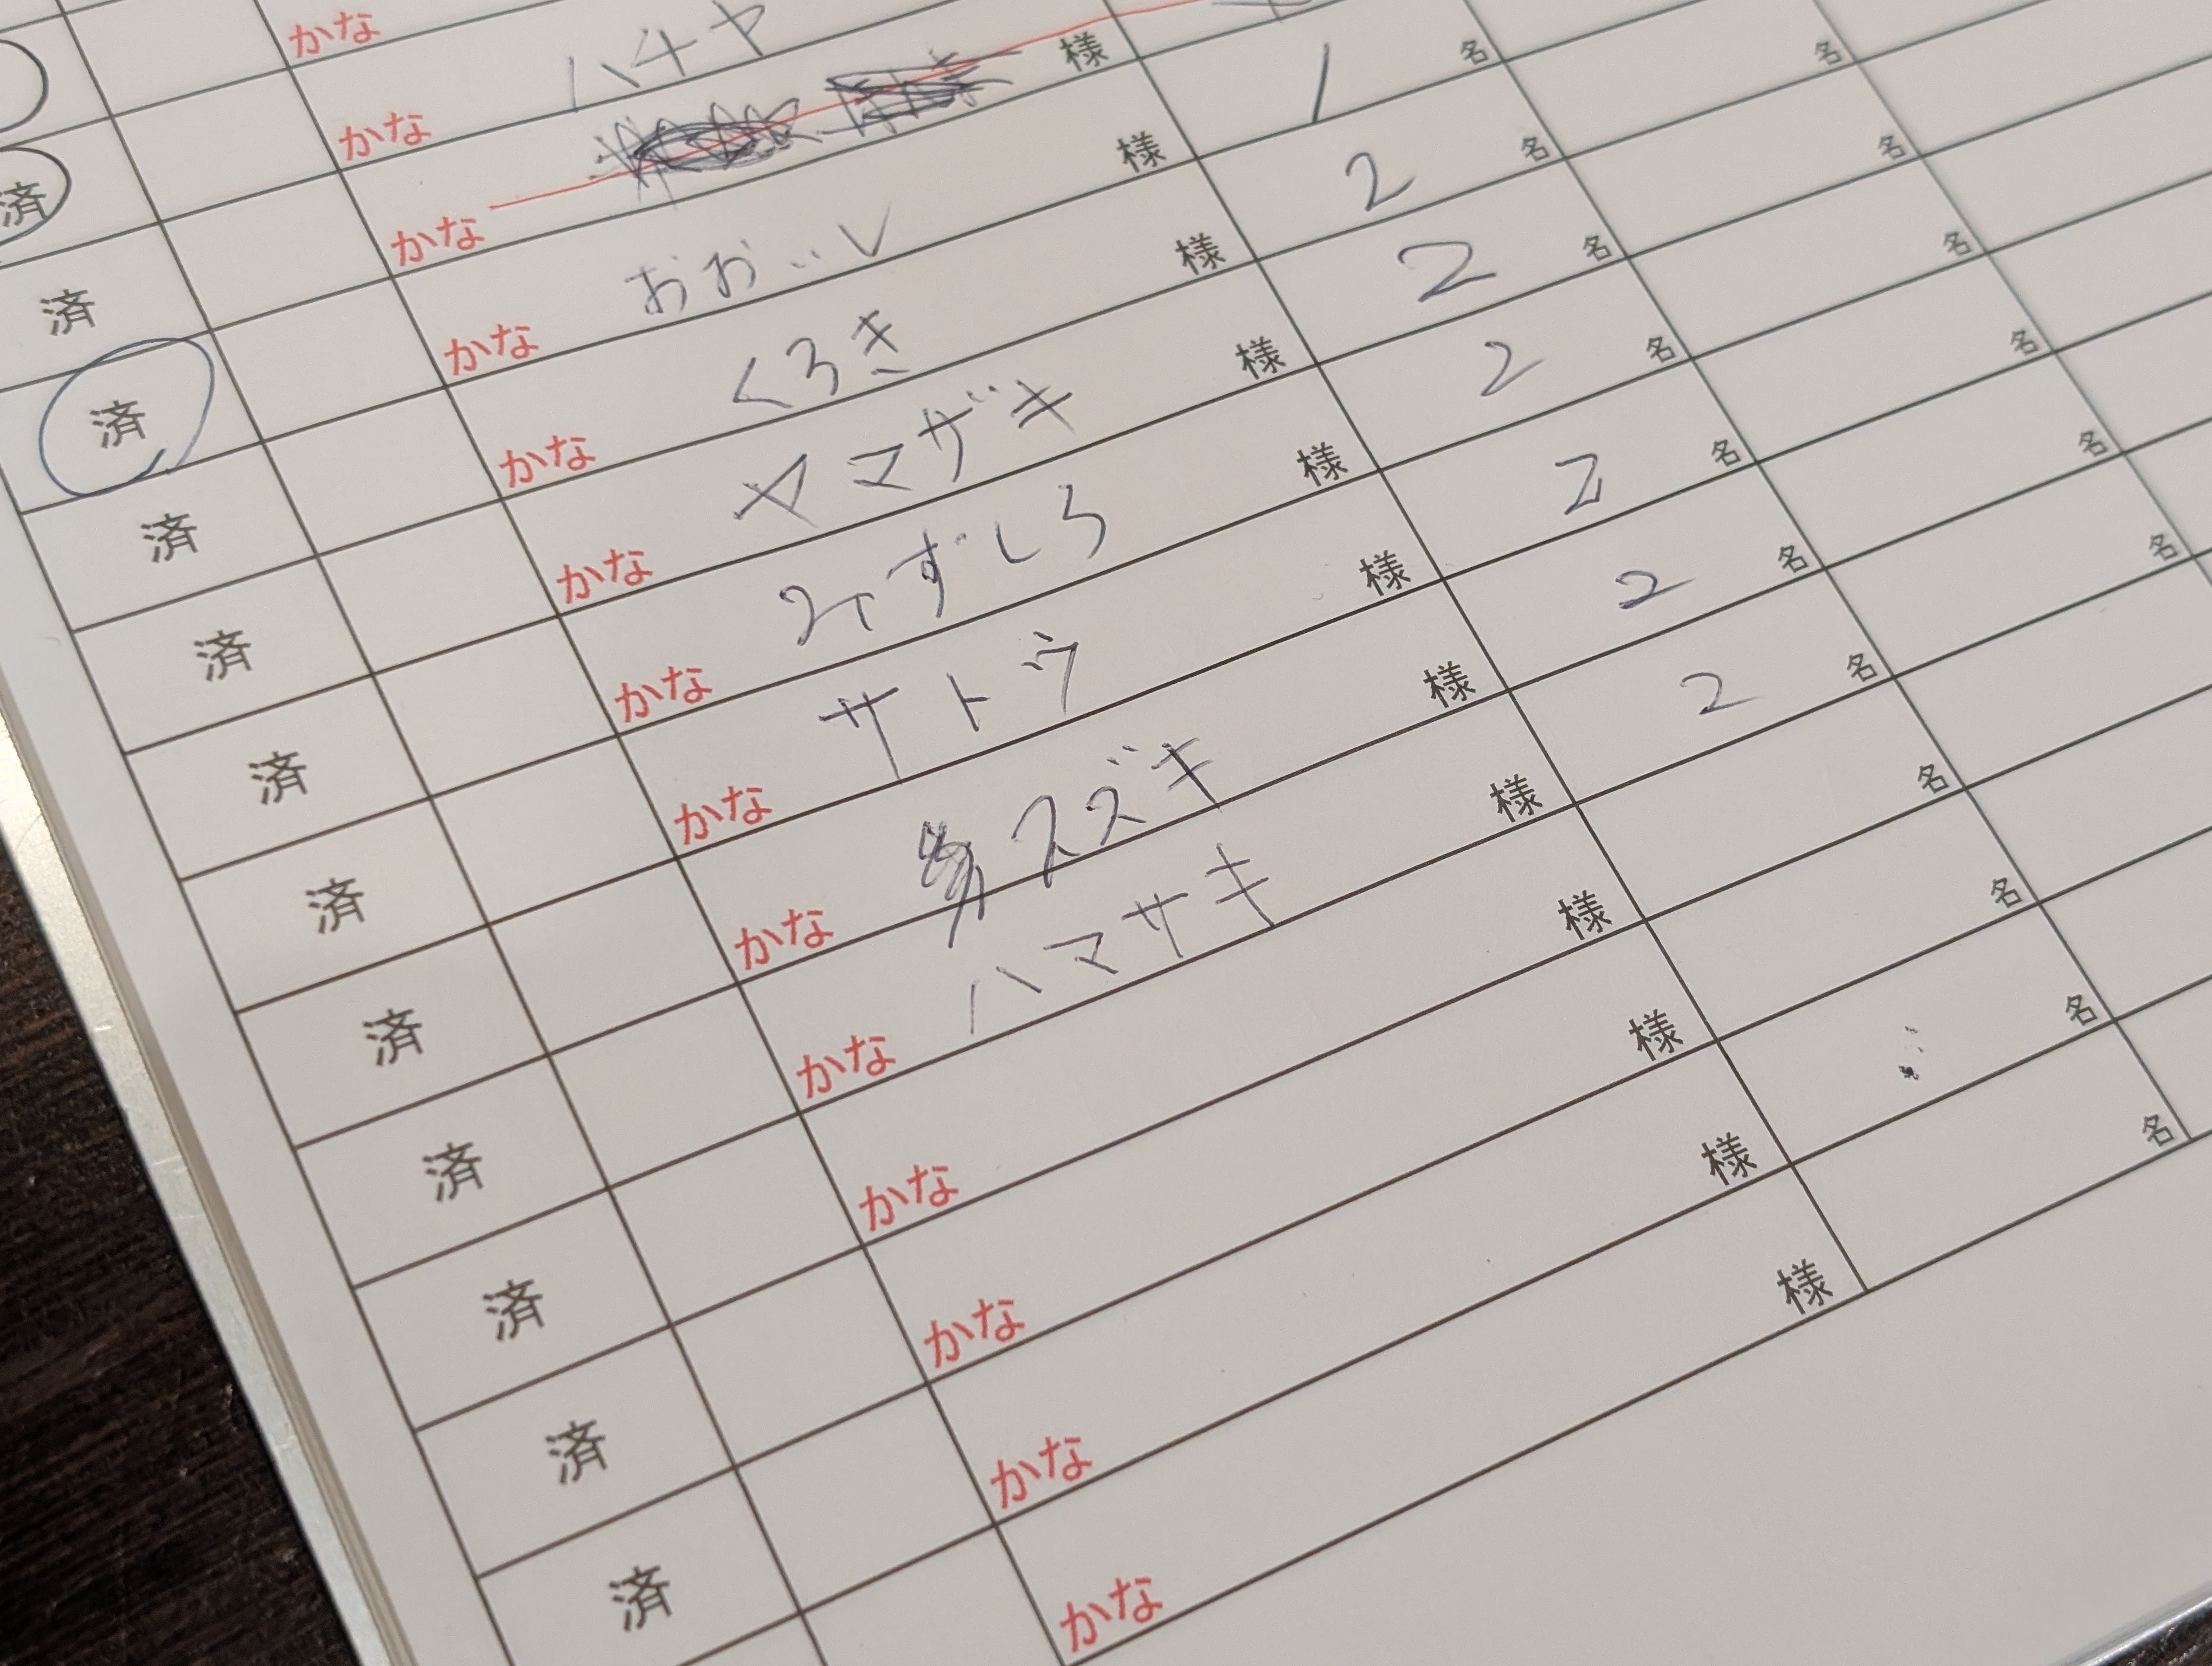 かな
済 かな ハチヤ
済 かな 様
済 かな おおいし 様 1 名
済 かな くろき 様 2 名 名
済 かな ヤマザキ 様 2 名 名
済 かな みずしろ 様 2 名 名
済 かな サトウ 様 2 名 名
済 かな スズキ 様 2 名 名
済 かな ハマサキ 様 2 名 名
済 かな 様 名
済 かな 様 名
済 かな 様 名
かな 様 名